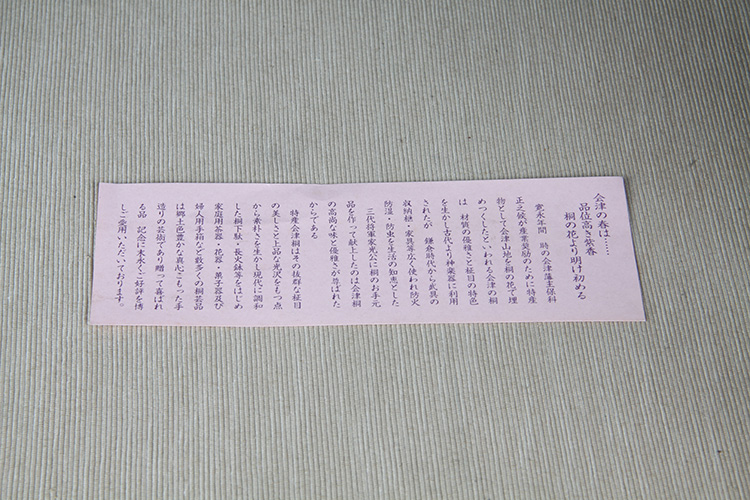 会津の春は……
品位高き紫香
桐の花より明け初める
寛永年間　時の会津藩主保科
正之候が産業奨励のために特産
物として会津山地を桐の花で埋
めつくしたといわれる会津の桐
は　材質の優雅さと柾目の特色
を生かし古代より神楽器に利用
されたが　鎌倉時代から武具の
収納櫃・家具等広く使われ防火
防湿・防虫を生活の知恵とした
三代将軍家光公に桐のお手元
品を作って献上したのは会津桐
の高尚な味と優雅さが尊ばれた
からである
特産会津桐はその抜群な柾目
の美しさと上品な光沢をもつ点
から素朴さを生かし現代に調和
した桐下駄・長火鉢等をはじめ
家庭用茶器・花器・菓子器及び
婦人用手箱など数多くの桐芸品
は郷土色豊かな真心こもった手
造りの芸術であり贈って喜ばれ
る品　記念に末永くご好評を博
しご愛用いただいております。